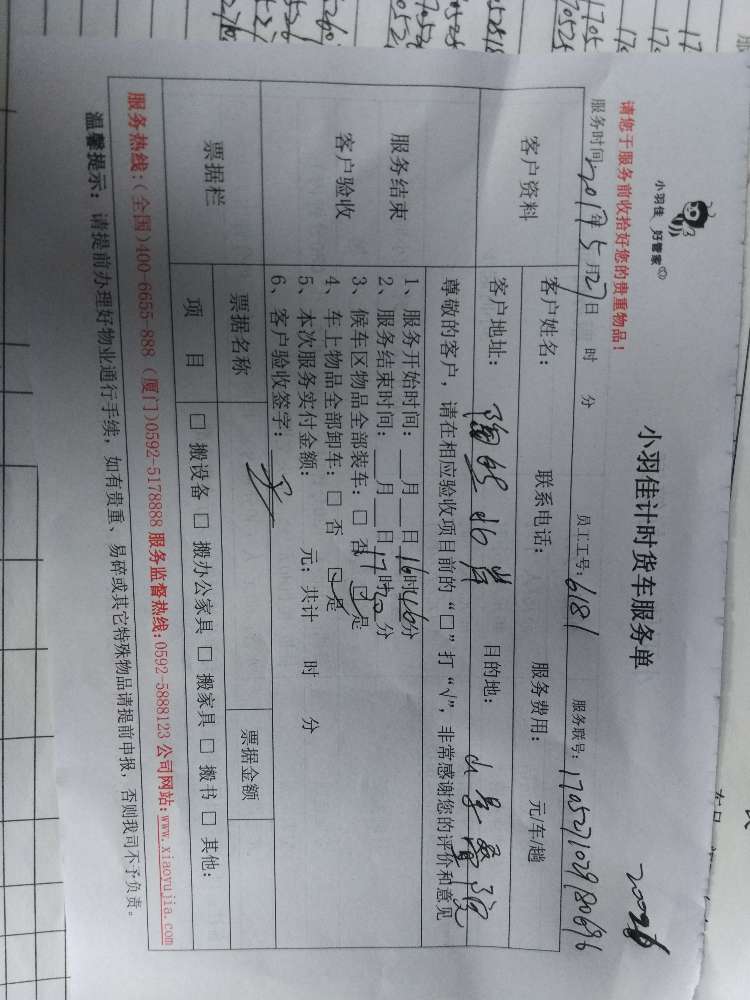 小羽佳 好管家
小羽佳计时货车服务单
20026
请您于服务前收拾好您的贵重物品！
服务时间 2017年5月27日 时 分 员工工号：6181 服务联号：1705271029180696
客户资料
客户姓名： 联系电话： 服务费用： 元/车/趟
客户地址： 北岸 目的地：
尊敬的客户，请在相应验收项目前的“□”打“√”，非常感谢您的评价和意见
服务结束
客户验收
1、服务开始时间：__月__日16时16分
2、服务结束时间：__月__日17时10分
3、候车区物品全部装车：□ 否 ☑ 是
4、车上物品全部卸车：□ 否 ☑ 是
5、本次服务实付金额： 元；共计 时 分
6、客户验收签字：
票据栏
票据名称 票据金额
项 目 □ 搬设备 □ 搬办公家具 □ 搬家具 □ 搬书 □ 其他：
服务热线：(全国)400-6655-888 (厦门)0592-5178888 服务监督热线：0592-5888123 公司网站：www.xiaoyujia.com
温馨提示：请提前办理好物业通行手续，如有贵重、易碎或其它特殊物品请提前申报，否则我司不予负责。